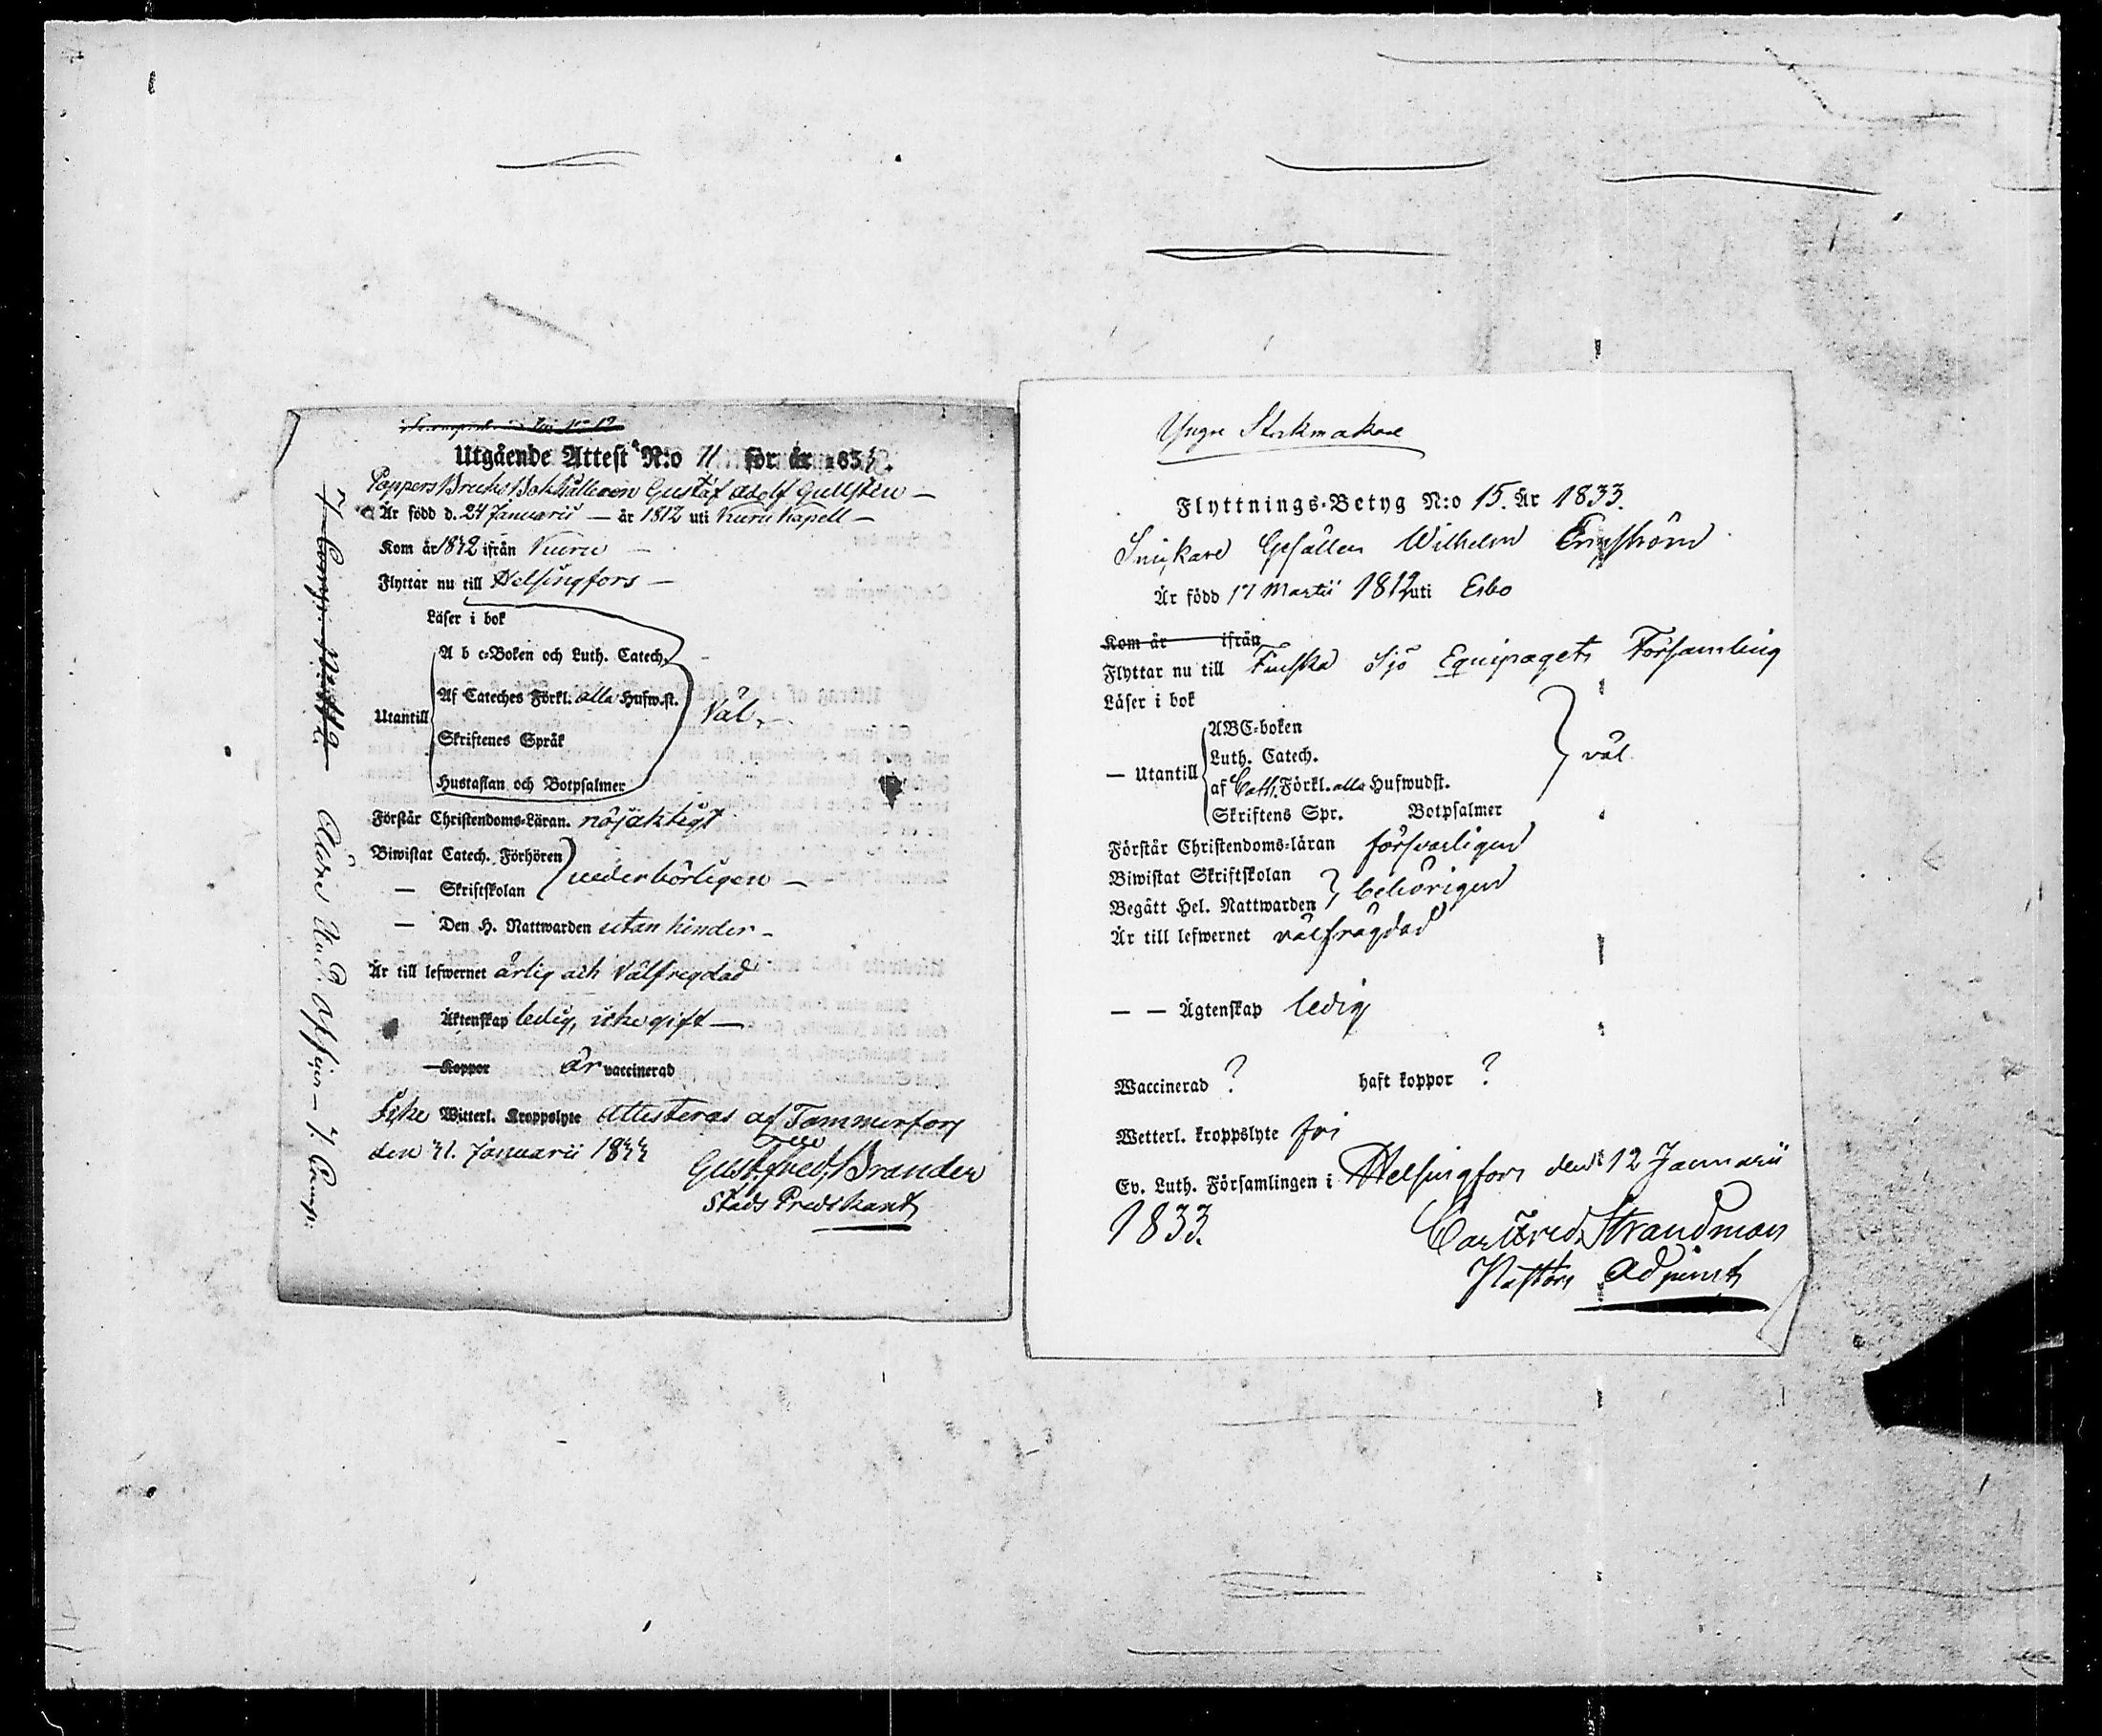 Utgående Attest N:o 11 för år 183
Pappers Bruks Bokhållaren Gustaf Adolf Gullstén —
Är född d. 24 Januarii — år 1812 uti Kuru Kapell —
Kom år 1832 ifrån Kuru —
Flyttar nu till Helsingfors —
Läser i bok
A b c-Boken och Luth. Catech.
Af Cateches Förkl. alla Hufw.st.
Utantill
Väl
Skriftenes Språk
Hustaflan och Botpsalmer
Förstår Christendoms-Läran. nöjaktigt
Biwistat Catech. Förhören
— Skriftskolan
vederbörligen —
— Den H. Nattwarden utan hinder —
Är till lefwernet ärlig och välfregdad
Äktenskap ledig, icke gift —
Koppor är vaccinerad
Witterl. Kroppslyte Attesteras af Tammerfors
den 31. Januarii 1833
Gust. Fred. Brander
Stads Predikant
7. Comp:
Yngre Stockmakare
Flyttnings-Betyg N:o 15. År 1833.
Snickare Gesällen Wilhelm Engström
Är född 17 Martii 1812 uti Esbo
Kom år ifrån
Flyttar nu till Finska Sjö Equipagets Församling
Läser i bok
ABC-boken
Luth. Catech.
— Utantill
väl
af Cath. Förkl. alla Hufwudst.
Skriftens Spr. Botpsalmer
Förstår Christendoms-läran försvarligen
Biwistat Skriftskolan
Begått Hel. Nattwarden
behörigen
Är till lefwernet välfrägdad
— — Ägtenskap ledig
Waccinerad ? haft koppor ?
Wetterl. kroppslyte fri
Ev. Luth. Församlingen i Helsingfors den 12 Januarii
1833.
Carl Fred. Strandman
Pastors Adjunct